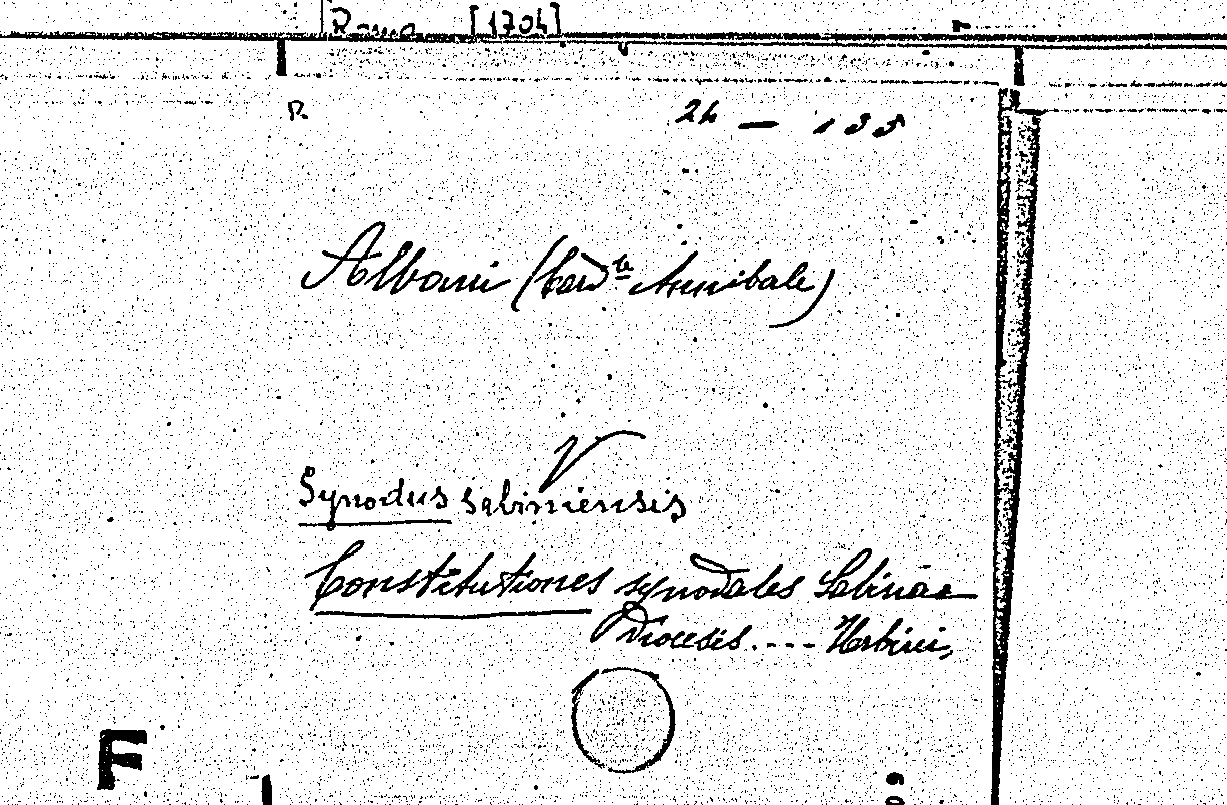 Roma [1704]
R
24 - 135
Albani (Card.le Annibale)
V
Synodus sabiniensis
Constitutiones synodales Sabinae
Diocesis .... Urbini,
F